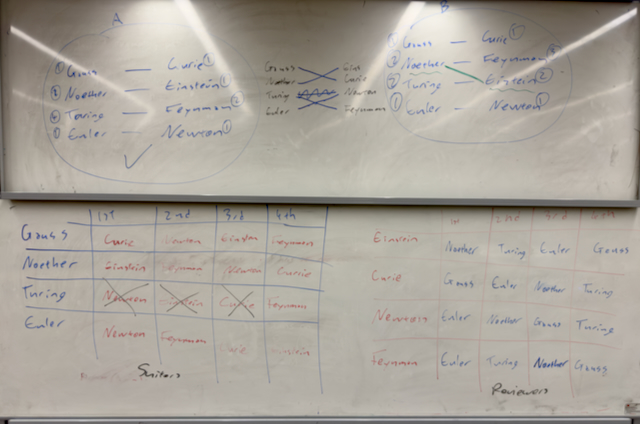 A
① Gauss — Curie ①
Noether — Einstein ①
④ Turing — Feynman ②
① Euler — Newton ①
Gauss
Noether Curie
Turing Newton
Euler Feynman
B
① Gauss — Curie ①
② Noether — Feynman
② Turing — Einstein ②
① Euler — Newton ①
1st 2nd 3rd 4th
Gauss Curie Newton Einstein Feynman
Noether Einstein Feynman Newton Currie
Turing Newton Einstein Curie Feynman
Euler Newton Feynman Curie Einstein
Suitors
1st 2nd 3rd 4th
Einstein Noether Turing Euler Gauss
Curie Gauss Euler Noether Turing
Newton Euler Noether Gauss Turing
Feynman Euler Turing Noether Gauss
Reviewers